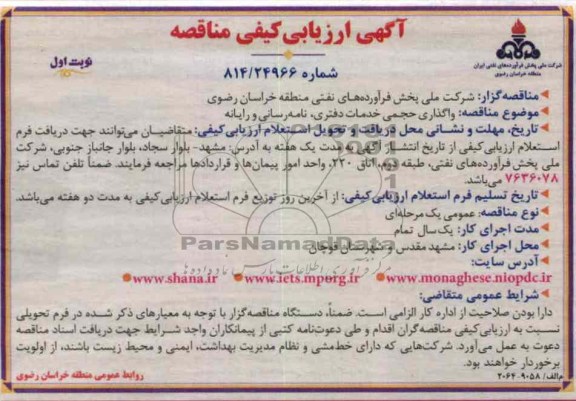 آگهی ارزیابی کیفی مناقصه
شرکت ملی پخش فرآورده‌های نفتی ایران
منطقه خراسان رضوی
نوبت اول
شماره ۸۱۴/۲۴۹۶۶
مناقصه‌گزار: شرکت ملی پخش فرآورده‌های نفتی منطقه خراسان رضوی
موضوع مناقصه: واگذاری حجمی خدمات دفتری، نامه‌رسانی و رایانه
تاریخ، مهلت و نشانی محل دریافت و تحویل استعلام ارزیابی کیفی: متقاضیان می‌توانند جهت دریافت فرم
استعلام ارزیابی کیفی از تاریخ انتشار آگهی به مدت یک هفته به آدرس: مشهد- بلوار سجاد، بلوار جانباز جنوبی، شرکت
ملی پخش فرآورده‌های نفتی، طبقه دوم، اتاق ۲۲۰، واحد امور پیمان‌ها و قراردادها مراجعه فرمایند. ضمناً تلفن تماس نیز
۷۶۳۶۰۷۸ می‌باشد.
تاریخ تسلیم فرم استعلام ارزیابی کیفی: از آخرین روز توزیع فرم استعلام ارزیابی کیفی به مدت دو هفته می‌باشد.
نوع مناقصه: عمومی یک مرحله‌ای
مدت اجرای کار: یک سال تمام
محل اجرای کار: مشهد مقدس و شهرستان قوچان
ParsNamadData
آدرس سایت:
www.monaghese.niopdc.ir www.iets.mporg.ir www.shana.ir
شرایط عمومی متقاضی:
دارا بودن صلاحیت از اداره کار الزامی است. ضمناً، دستگاه مناقصه‌گزار با توجه به معیارهای ذکر شده در فرم تحویلی
نسبت به ارزیابی کیفی مناقصه‌گران اقدام و طی دعوت‌نامه کتبی از پیمانکاران واجد شرایط جهت دریافت اسناد مناقصه
دعوت به عمل می‌آورد. شرکت‌هایی که دارای خط‌مشی و نظام مدیریت بهداشت، ایمنی و محیط زیست باشند، از اولویت
برخوردار خواهند بود.
م‌الف/ ۲۰۶۴۰۹۰۵۸
روابط عمومی منطقه خراسان رضوی